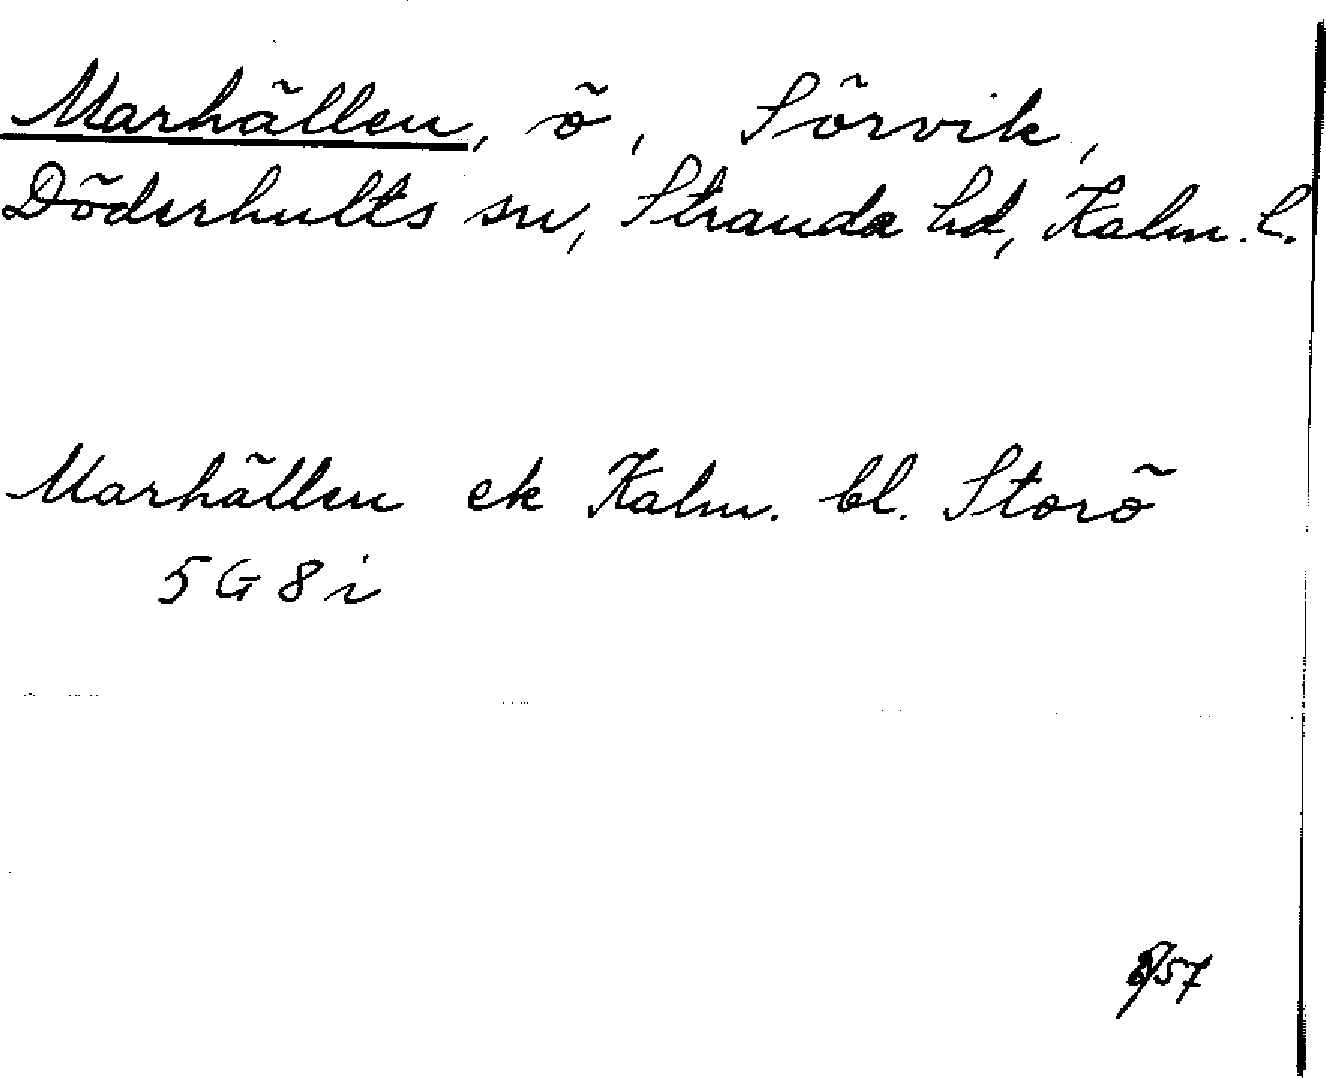 Marhällen, ö, Sörvik,
Döderhults sn, Stranda hd, Kalm. l.
Marhällen ek Kalm. bl. Storö
5 G 8 i